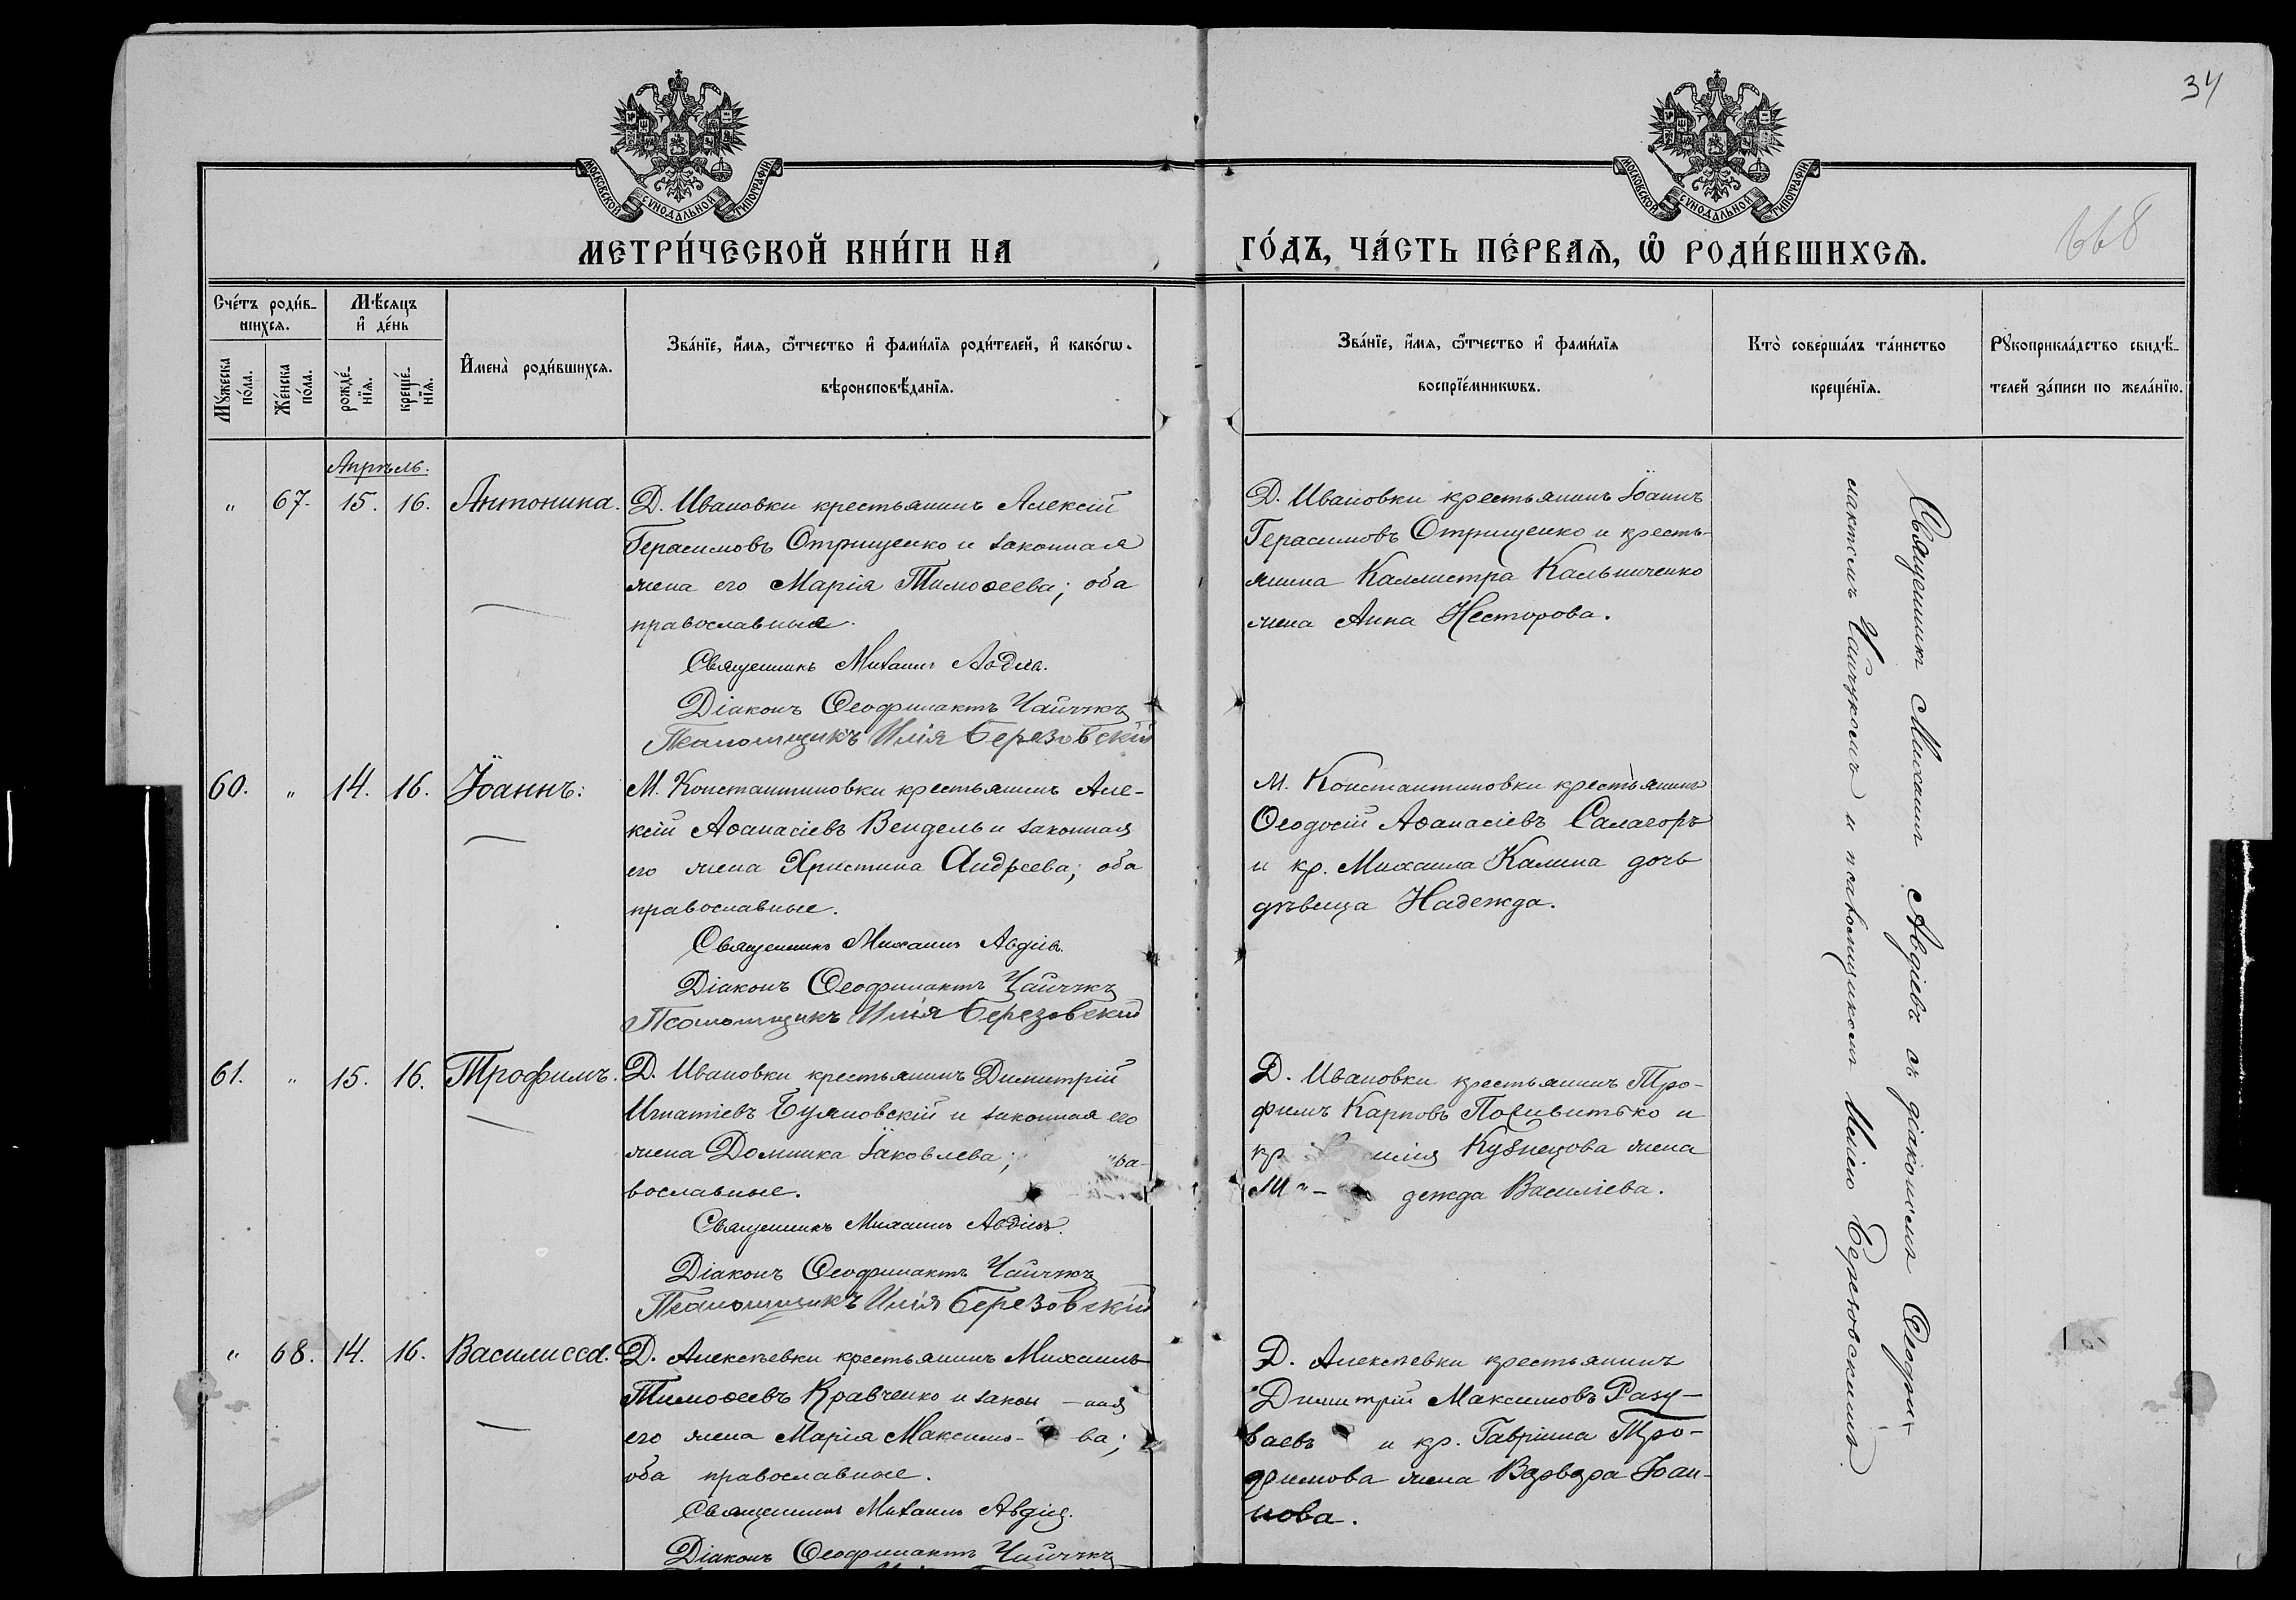 34
668
МОСКОВСКОЙ СѴНОДАЛЬНОЙ ТИПОГРАФІИ
МОСКОВСКОЙ СѴНОДАЛЬНОЙ ТИПОГРАФІИ
МЕТРИ́ЧЕСКОЙ КНИ́ГИ НА
ГО́ДЪ, ЧА́СТЬ ПЕ́РВАѦ, Ѽ РОДИ́ВШИХСѦ.
Сче́тъ роди́в-
шихсѧ.
Мꙋжеска по́ла.
Же́нска по́ла.
Мѣ́сяцъ
и҆ де́нь
рожде́-нїѧ.
креще́-нїѧ.
И҆мена̀ роди́вшихсѧ.
Зва́нїе, и҆́мѧ, ѻ҆́тчество и҆ фами́лїѧ роди́телей, и҆ како́гѡ
вѣроисповѣ́данїѧ.
Зва́нїе, и҆́мѧ, ѻ҆́тчество и҆ фами́лїѧ
воспрїе́мникѡвъ.
Кто̀ соверша́лъ та́инство
креще́нїѧ.
Рꙋкоприкла́дство свидѣ́-
телей за́писи по жела́нїю.
Апрѣль.
" 67. 15. 16. Антонина.
Д. Ивановки крестьянинъ Алексій
Герасимовъ Отрищенко и законная
жена его Марія Тимоѳеева; оба
православные.
Священникъ Михаилъ
Діаконъ Ѳеофилактъ
Псаломщикъ Илія Березовскій
Д. Ивановки крестьянинъ Іоаннъ
Герасимовъ Отрищенко и кресть-
янина Каллистра Кальниченко
жена Анна Несторова.
60. " 14. 16. Іоаннъ.
М. Константиновки крестьянинъ Але-
ксій Аѳанасіевъ Вендель и законная
его жена Христина Андреева; оба
православные.
Священникъ Михаилъ Авдіевъ.
Діаконъ Ѳеофилактъ
Псаломщикъ Илія Березовскій
М. Константиновки крестьянинъ
Ѳеодосій Аѳанасіевъ Салагоръ
и кр. Михаила Калина дочь
дѣвица Надежда.
61. " 15. 16. Трофимъ.
Д. Ивановки крестьянинъ Димитрій
Игнатіевъ Буяновскій и законная его
жена Домника Іаковлева;
вославные.
Священникъ Михаилъ Авдіевъ.
Діаконъ Ѳеофилактъ
Псаломщикъ Илія Березовскій
Д. Ивановки крестьянинъ Тро-
фимъ Карповъ и
кр. Кузнецова жена
дежда Василіева.
" 68. 14. 16. Василисса.
Д. Алексѣевки крестьянинъ Михаилъ
Тимоѳеевъ Кравченко и закон-ная
его жена Марія Максимо-ва;
оба православные.
Священникъ Михаилъ
Діаконъ Ѳеофилактъ
Д. Алексѣевки крестьянинъ
Димитрій Максимовъ Разу-
ваевъ и кр. Гавріила Тро-
фимова жена Варвара Іоан-
нова.
Священникъ Михаилъ Авдіевъ съ діакономъ Ѳеофи-
лактомъ и псаломщикомъ Иліею Березовскимъ.